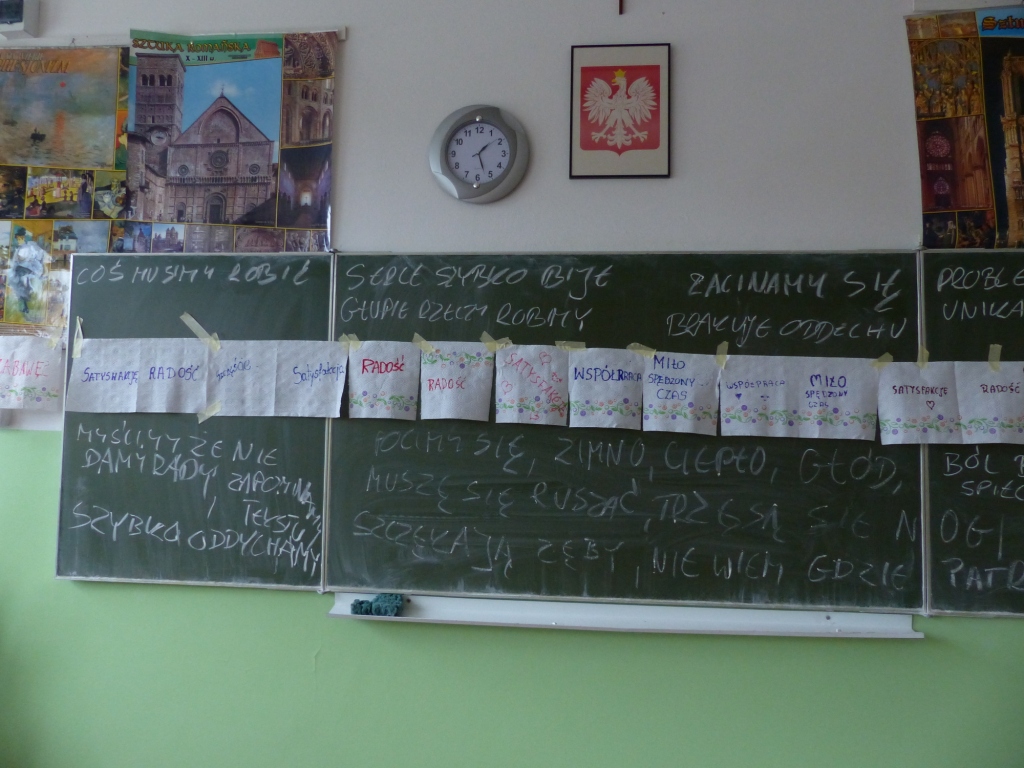 SZTUKA ROMAŃSKA
X - XIII w.
COŚ MUSIMY ROBIĆ
SERCE SZYBKO BIJE
GŁUPIE RZECZY ROBIMY
ZACINAMY SIĘ
BRAKUJE ODDECHU
PROBLE
UNIKA
ZABAWĘ
SATYSFAKCJĘ
RADOŚĆ
Satysfakcja
RADOŚĆ
RADOŚĆ
SATYSFAKCJA
WSPÓŁPRACA
MIŁO
SPĘDZONY
CZAS
WSPÓŁPRACA
MIŁO
SPĘDZONY
CZAS
SATYSFAKCJĘ
RADOŚĆ
MYŚLIMY ŻE NIE
DAMY RADY, ZAPOMINAMY
TEKSTU,
SZYBKO ODDYCHAMY
POCIMY SIĘ, ZIMNO, CIEPŁO, GŁÓD,
MUSZĘ SIĘ RUSZAĆ, TRZĘSĄ SIĘ NOGI,
SZCZĘKAJĄ ZĘBY, NIE WIEM, GDZIE PATR
BÓL
12 1 2 3 4 5 6 7 8 9 10 11